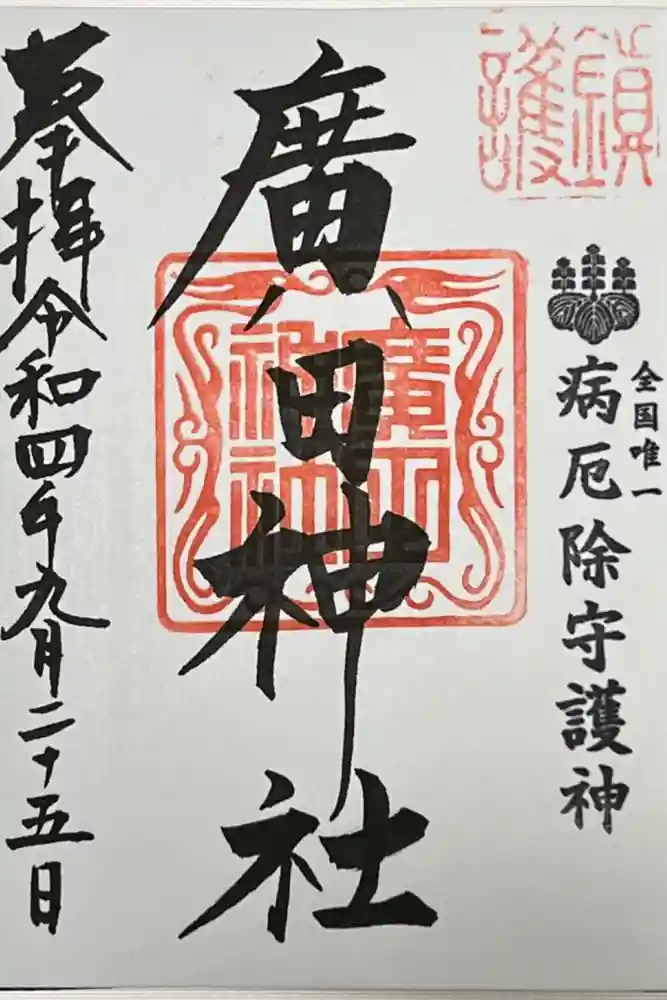 鎮護
全国唯一
病厄除守護神
廣田神社
廣田
神社
奉拝令和四年九月二十五日